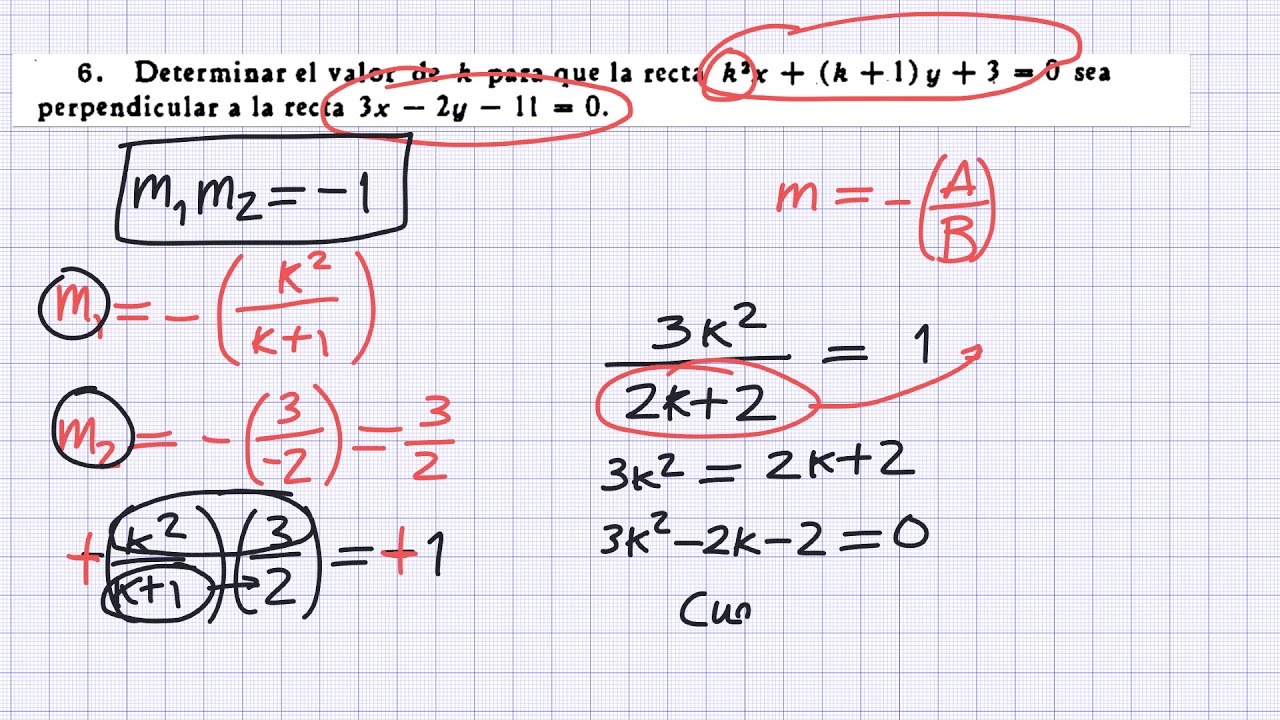 6. Determinar el valor de k para que la recta k²x + (k + 1) y + 3 = 0 sea
perpendicular a la recta 3x − 2y − 11 = 0.
m₁ m₂ = −1
m = −(A/B)
m₁ = −(k²/(k+1))
m₂ = −(3/−2) = 3/2
+(k²/(k+1))(3/2) = +1
3k²/(2k+2) = 1
3k² = 2k+2
3k² − 2k − 2 = 0
Cua